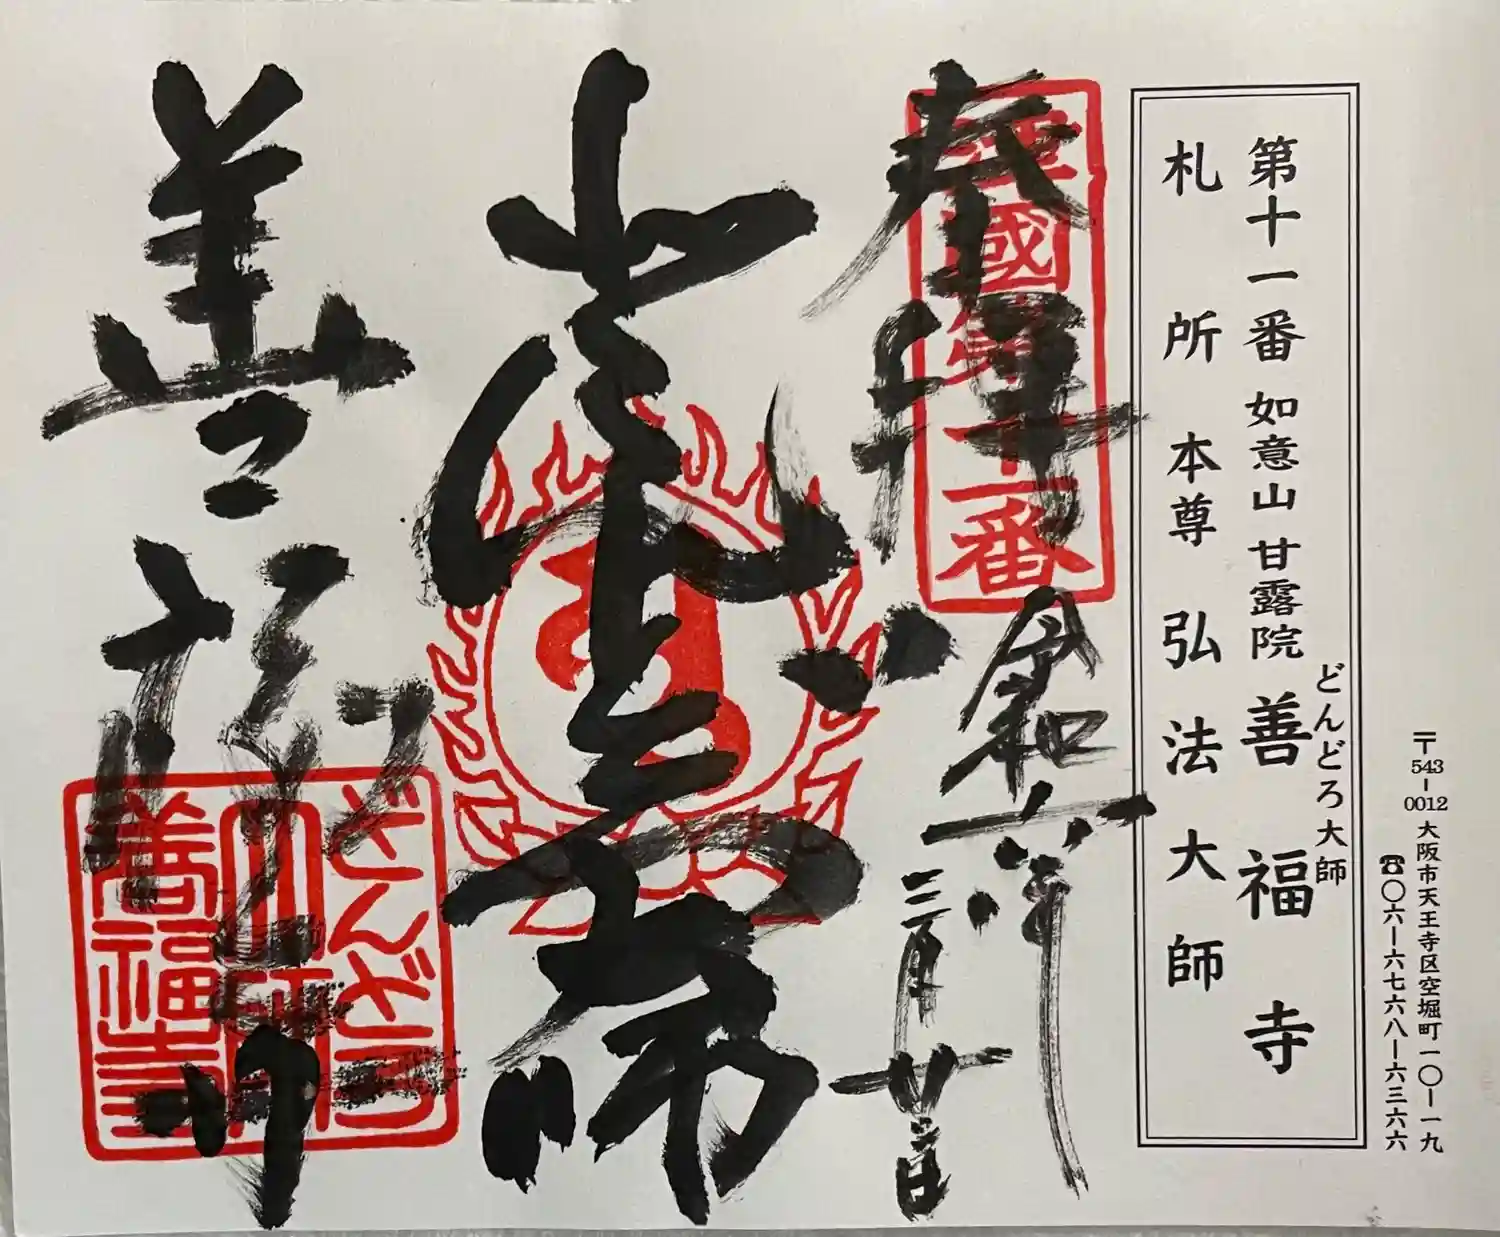 〒543-0012 大阪市天王寺区空堀町一〇ー一九
☎〇六ー六七六八ー六三六六
どんどろ大師
第十一番 如意山 甘露院 善福寺
札所本尊 弘法大師
奉拝
令和六年
三月廿三日
善福寺
どんどろ
大師
善福寺